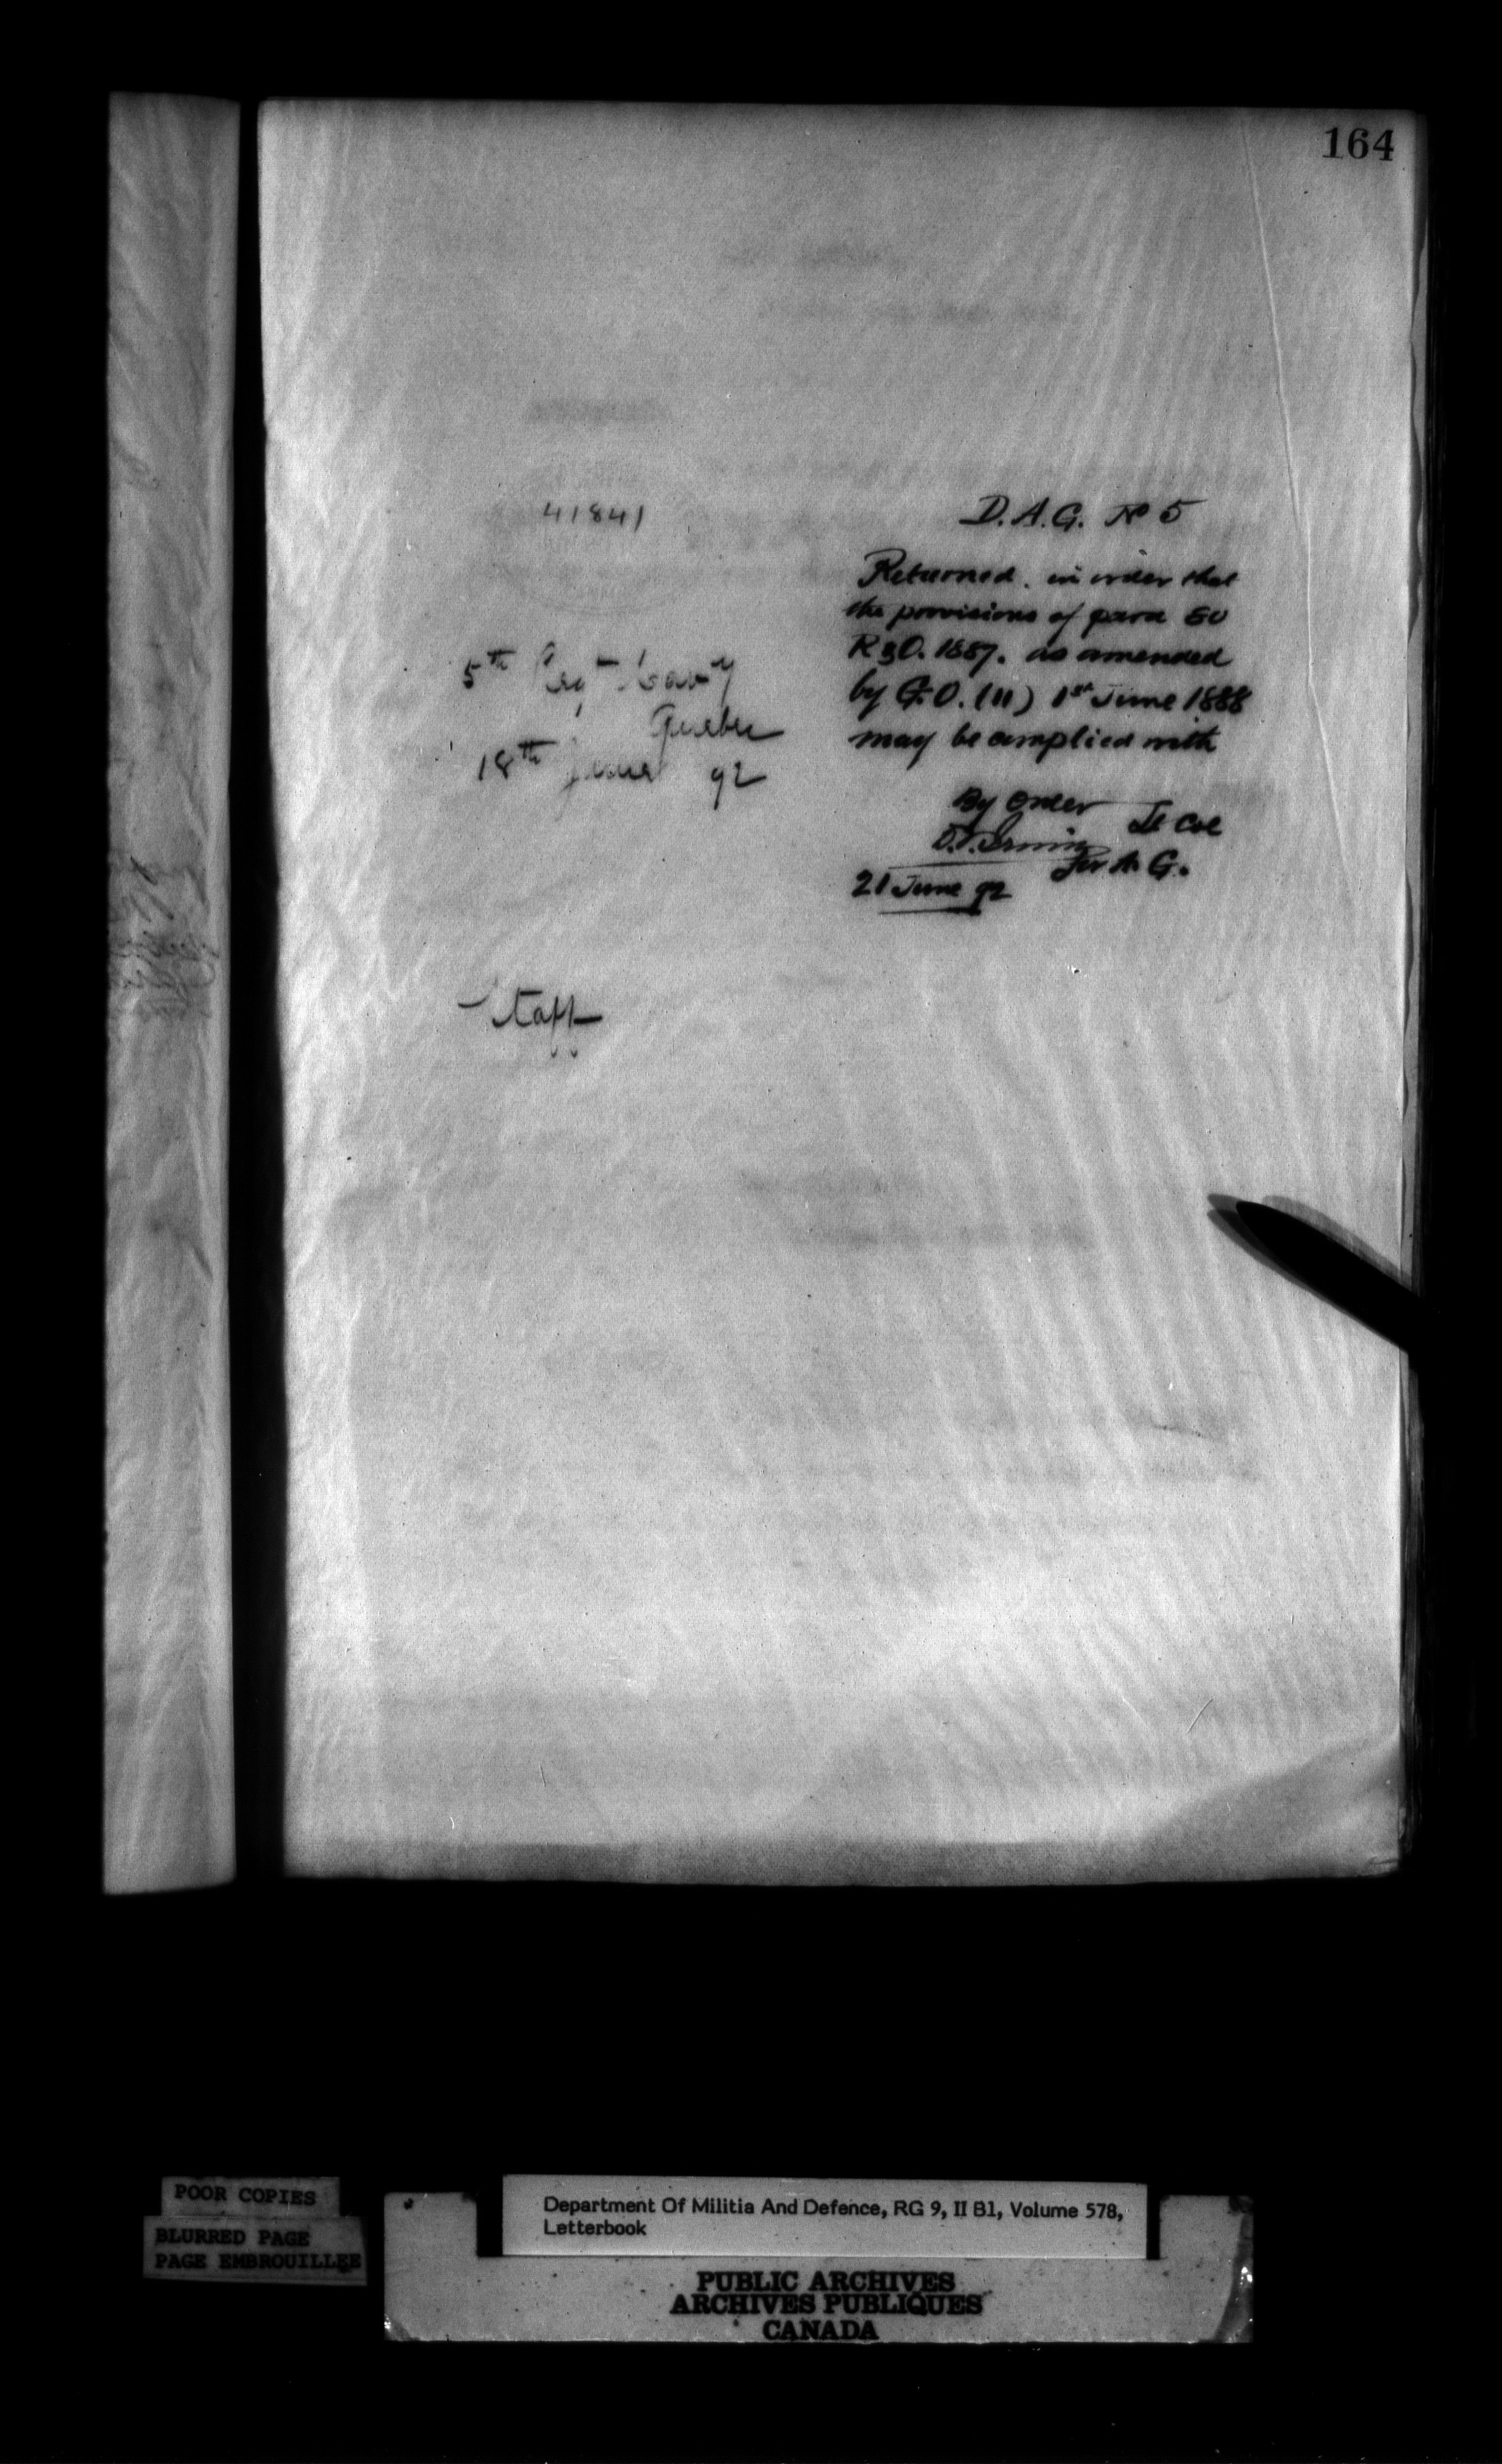 164
41841
5th Regt Cavy
Quebec
18th June 92
Staff
D.A.G. No 5
Returned. in order that
the provisions of para 50
R & O. 1887. as amended
by G.O. (11) 1st June 1888
may be complied with
By Order
D.T. Irwin Lt Col
for A. G.
21 June 92
POOR COPIES
BLURRED PAGE
PAGE EMBROUILLEE
Department Of Militia And Defence, RG 9, II B1, Volume 578,
Letterbook
PUBLIC ARCHIVES
ARCHIVES PUBLIQUES
CANADA